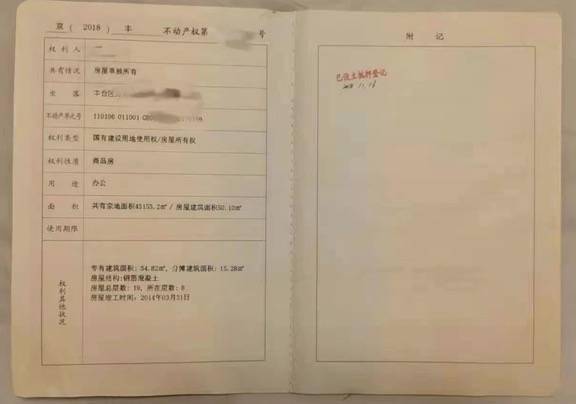 京（2018）丰 不动产权第 号
权利人
共有情况 房屋单独所有
坐落 丰台区
不动产单元号 110106 011001
权利类型 国有建设用地使用权/房屋所有权
权利性质 商品房
用途 办公
面积 共有宗地面积43155.2㎡ / 房屋建筑面积50.10㎡
使用期限
权利其他状况
专有建筑面积: 34.82㎡, 分摊建筑面积: 15.28㎡
房屋结构:钢筋混凝土
房屋总层数: 19, 所在层数: 8
房屋竣工时间: 2014年03月31日
附记
已设立抵押登记